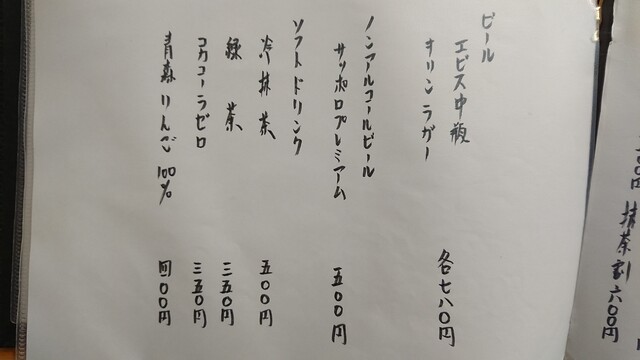 ビール
エビス中瓶
キリンラガー 各七八〇円
ノンアルコールビール
サッポロプレミアム 五〇〇円
ソフトドリンク
冷抹茶 五〇〇円
緑茶 三五〇円
コカコーラゼロ 三五〇円
青森りんご100% 四〇〇円
抹茶割 六〇〇円